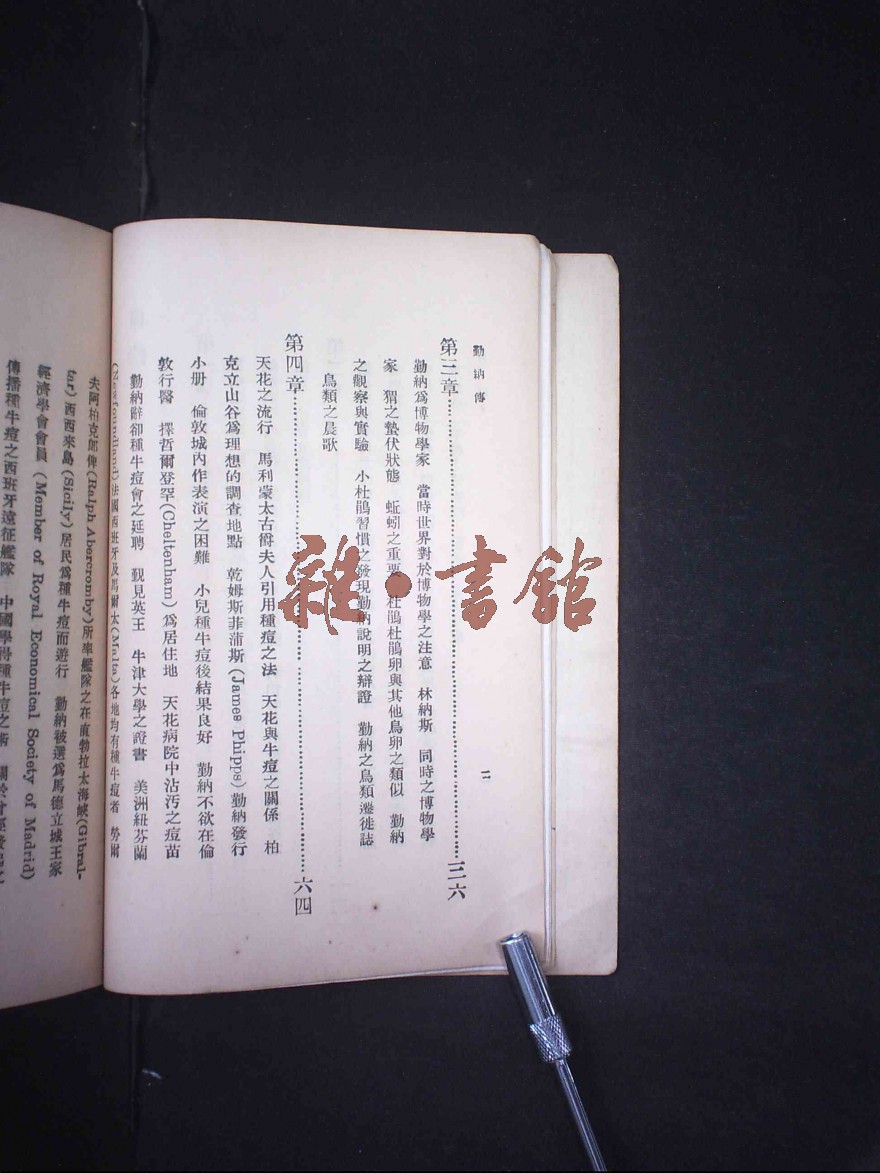 勤納傳
二
第三章……三六
勤納爲博物學家　當時世界對於博物學之注意　林納斯　同時之博物學
家　猬之蟄伏狀態　蚯蚓之重要　杜鵑杜鵑卵與其他鳥卵之類似　勤納
之觀察與實驗　小杜鵑習慣之發現勤納說明之辯證　勤納之鳥類遷徙誌
鳥類之晨歌
第四章……六四
天花之流行　馬利蒙太古爵夫人引用種痘之法　天花與牛痘之關係　柏
克立山谷爲理想的調查地點　乾姆斯菲蒲斯(James Phipps)勤納發行
小册　倫敦城內作表演之困難　小兒種牛痘後結果良好　勤納不欲在倫
敦行醫　擇哲爾登罕(Cheltenham)爲居住地　天花病院中沾汚之痘苗
勤納辭卻種牛痘會之延聘　覲見英王　牛津大學之證書　美洲紐芬蘭
(Newfoundland)法國西班牙及馬爾太(Malta)各地均有種牛痘者　勞爾
夫阿柏克郎俾(Ralph Abercromby)所率艦隊之在直勃拉太海峽(Gibral-
tar)西西來島(Sicily)居民爲種牛痘而遊行　勤納被選爲馬德立城王家
經濟學會會員(Member of Royal Economical Society of Madrid)
傳播種牛痘之西班牙遠征艦隊　中國學得種牛痘之術
雜·書館